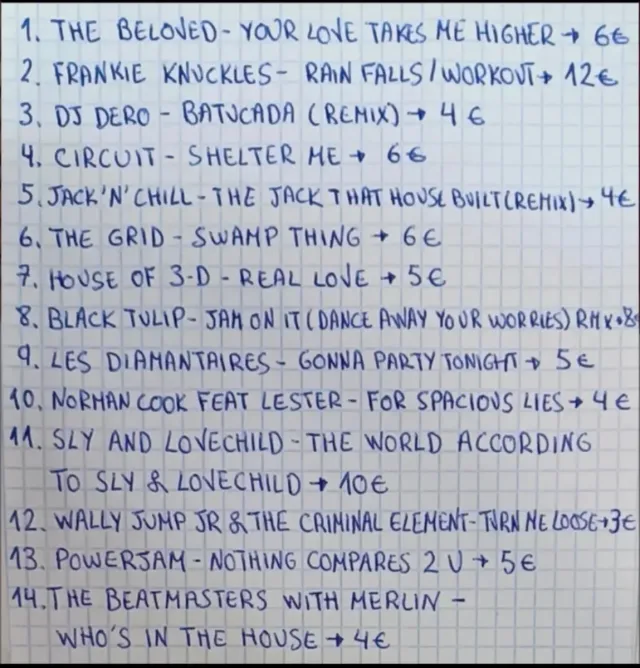 1. THE BELOVED - YOUR LOVE TAKES ME HIGHER → 6€
2. FRANKIE KNUCKLES - RAIN FALLS / WORKOUT → 12€
3. DJ DERO - BATUCADA (REMIX) → 4€
4. CIRCUIT - SHELTER ME → 6€
5. JACK'N'CHILL - THE JACK THAT HOUSE BUILT (REMIX) → 4€
6. THE GRID - SWAMP THING → 6€
7. HOUSE OF 3-D - REAL LOVE → 5€
8. BLACK TULIP - JAM ON IT (DANCE AWAY YOUR WORRIES) RMX → 8€
9. LES DIAMANTAIRES - GONNA PARTY TONIGHT → 5€
10. NORMAN COOK FEAT LESTER - FOR SPACIOUS LIES → 4€
11. SLY AND LOVECHILD - THE WORLD ACCORDING
TO SLY & LOVECHILD → 10€
12. WALLY JUMP JR & THE CRIMINAL ELEMENT - TURN ME LOOSE → 3€
13. POWERJAM - NOTHING COMPARES 2 U → 5€
14. THE BEATMASTERS WITH MERLIN -
WHO'S IN THE HOUSE → 4€